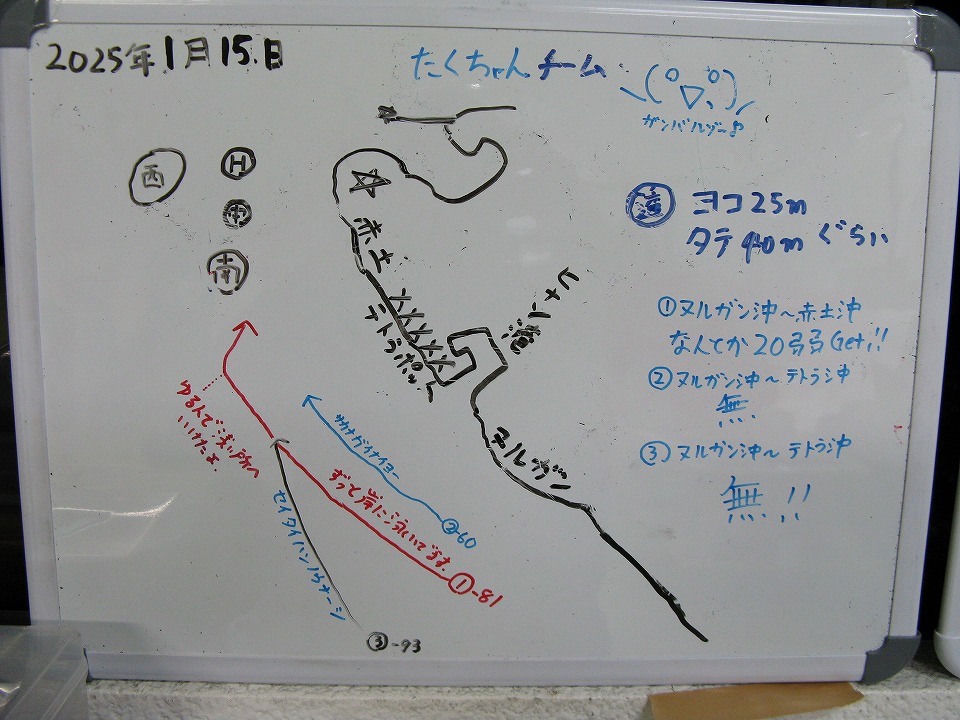 2025年1月15.日
たくちゃんチーム
ガンバルゾー
西
H
中
南
赤土
テトラポット
ヒナー1
ヌルガン
ヨコ25m
タテ40mぐらい
①ヌルガン沖〜赤土沖
なんとか20弱弱Get!!
②ヌルガン沖〜テトラ沖
無
③ヌルガン沖〜テトラ沖
無!!
ゆるんで浅い所へ
いけたよ.
サカナガイナイヨー
②-60
ずって岸に沿いです.
①-81
セイタイハンノウナーシ
③-93